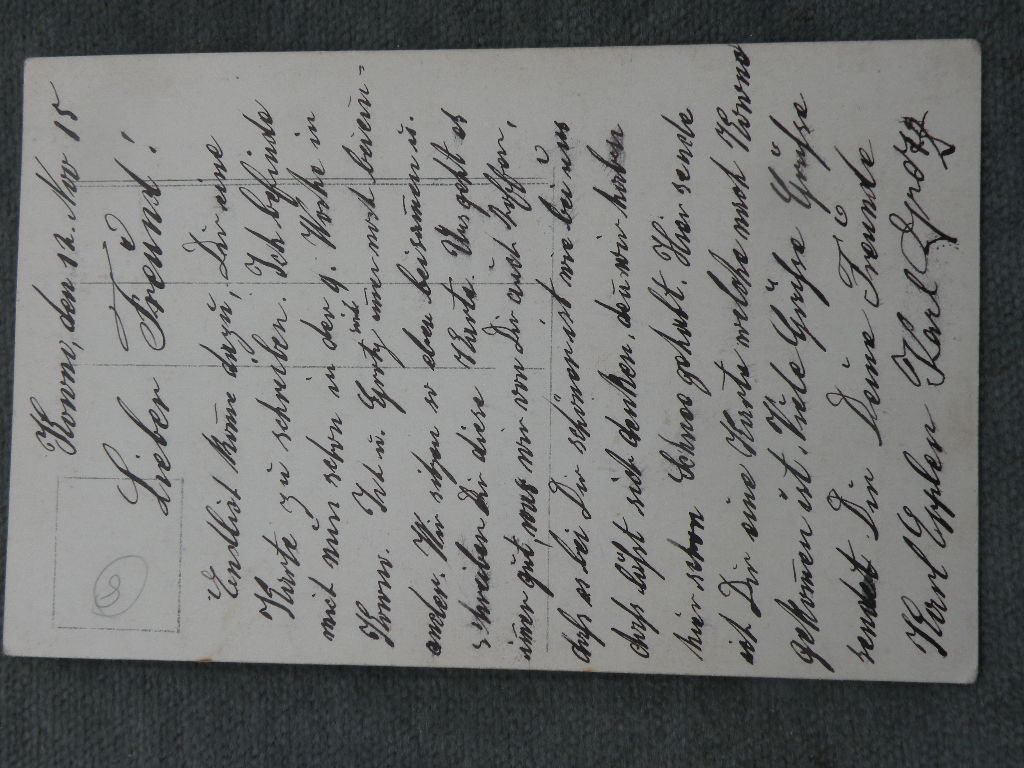 Kowno, den 12. Nov 15
Lieber Freund!
Endlist kome dazu, Dir eine
Karte zu schreiben. Ich befinde
mich nun schon in der 4. Woche in
Kowno. Ich u. sind immer noch beiein-
ander. Wir sitzen so eben beisamen u.
schreiben Dir diese Karte. Uns geht es
imer gut, was wir von Dir auch hoffen,
daß es bei Dir schöner ist wie bei uns
daß läßt sich denken, den wir haben
hier schon Schnee gehabt. Hier sende
ich Dir eine Karte welche nach Kowno
gekomen ist. Viele Grüße Grüße
sendet Dir Deine Freunde
Karl Epplen Karl